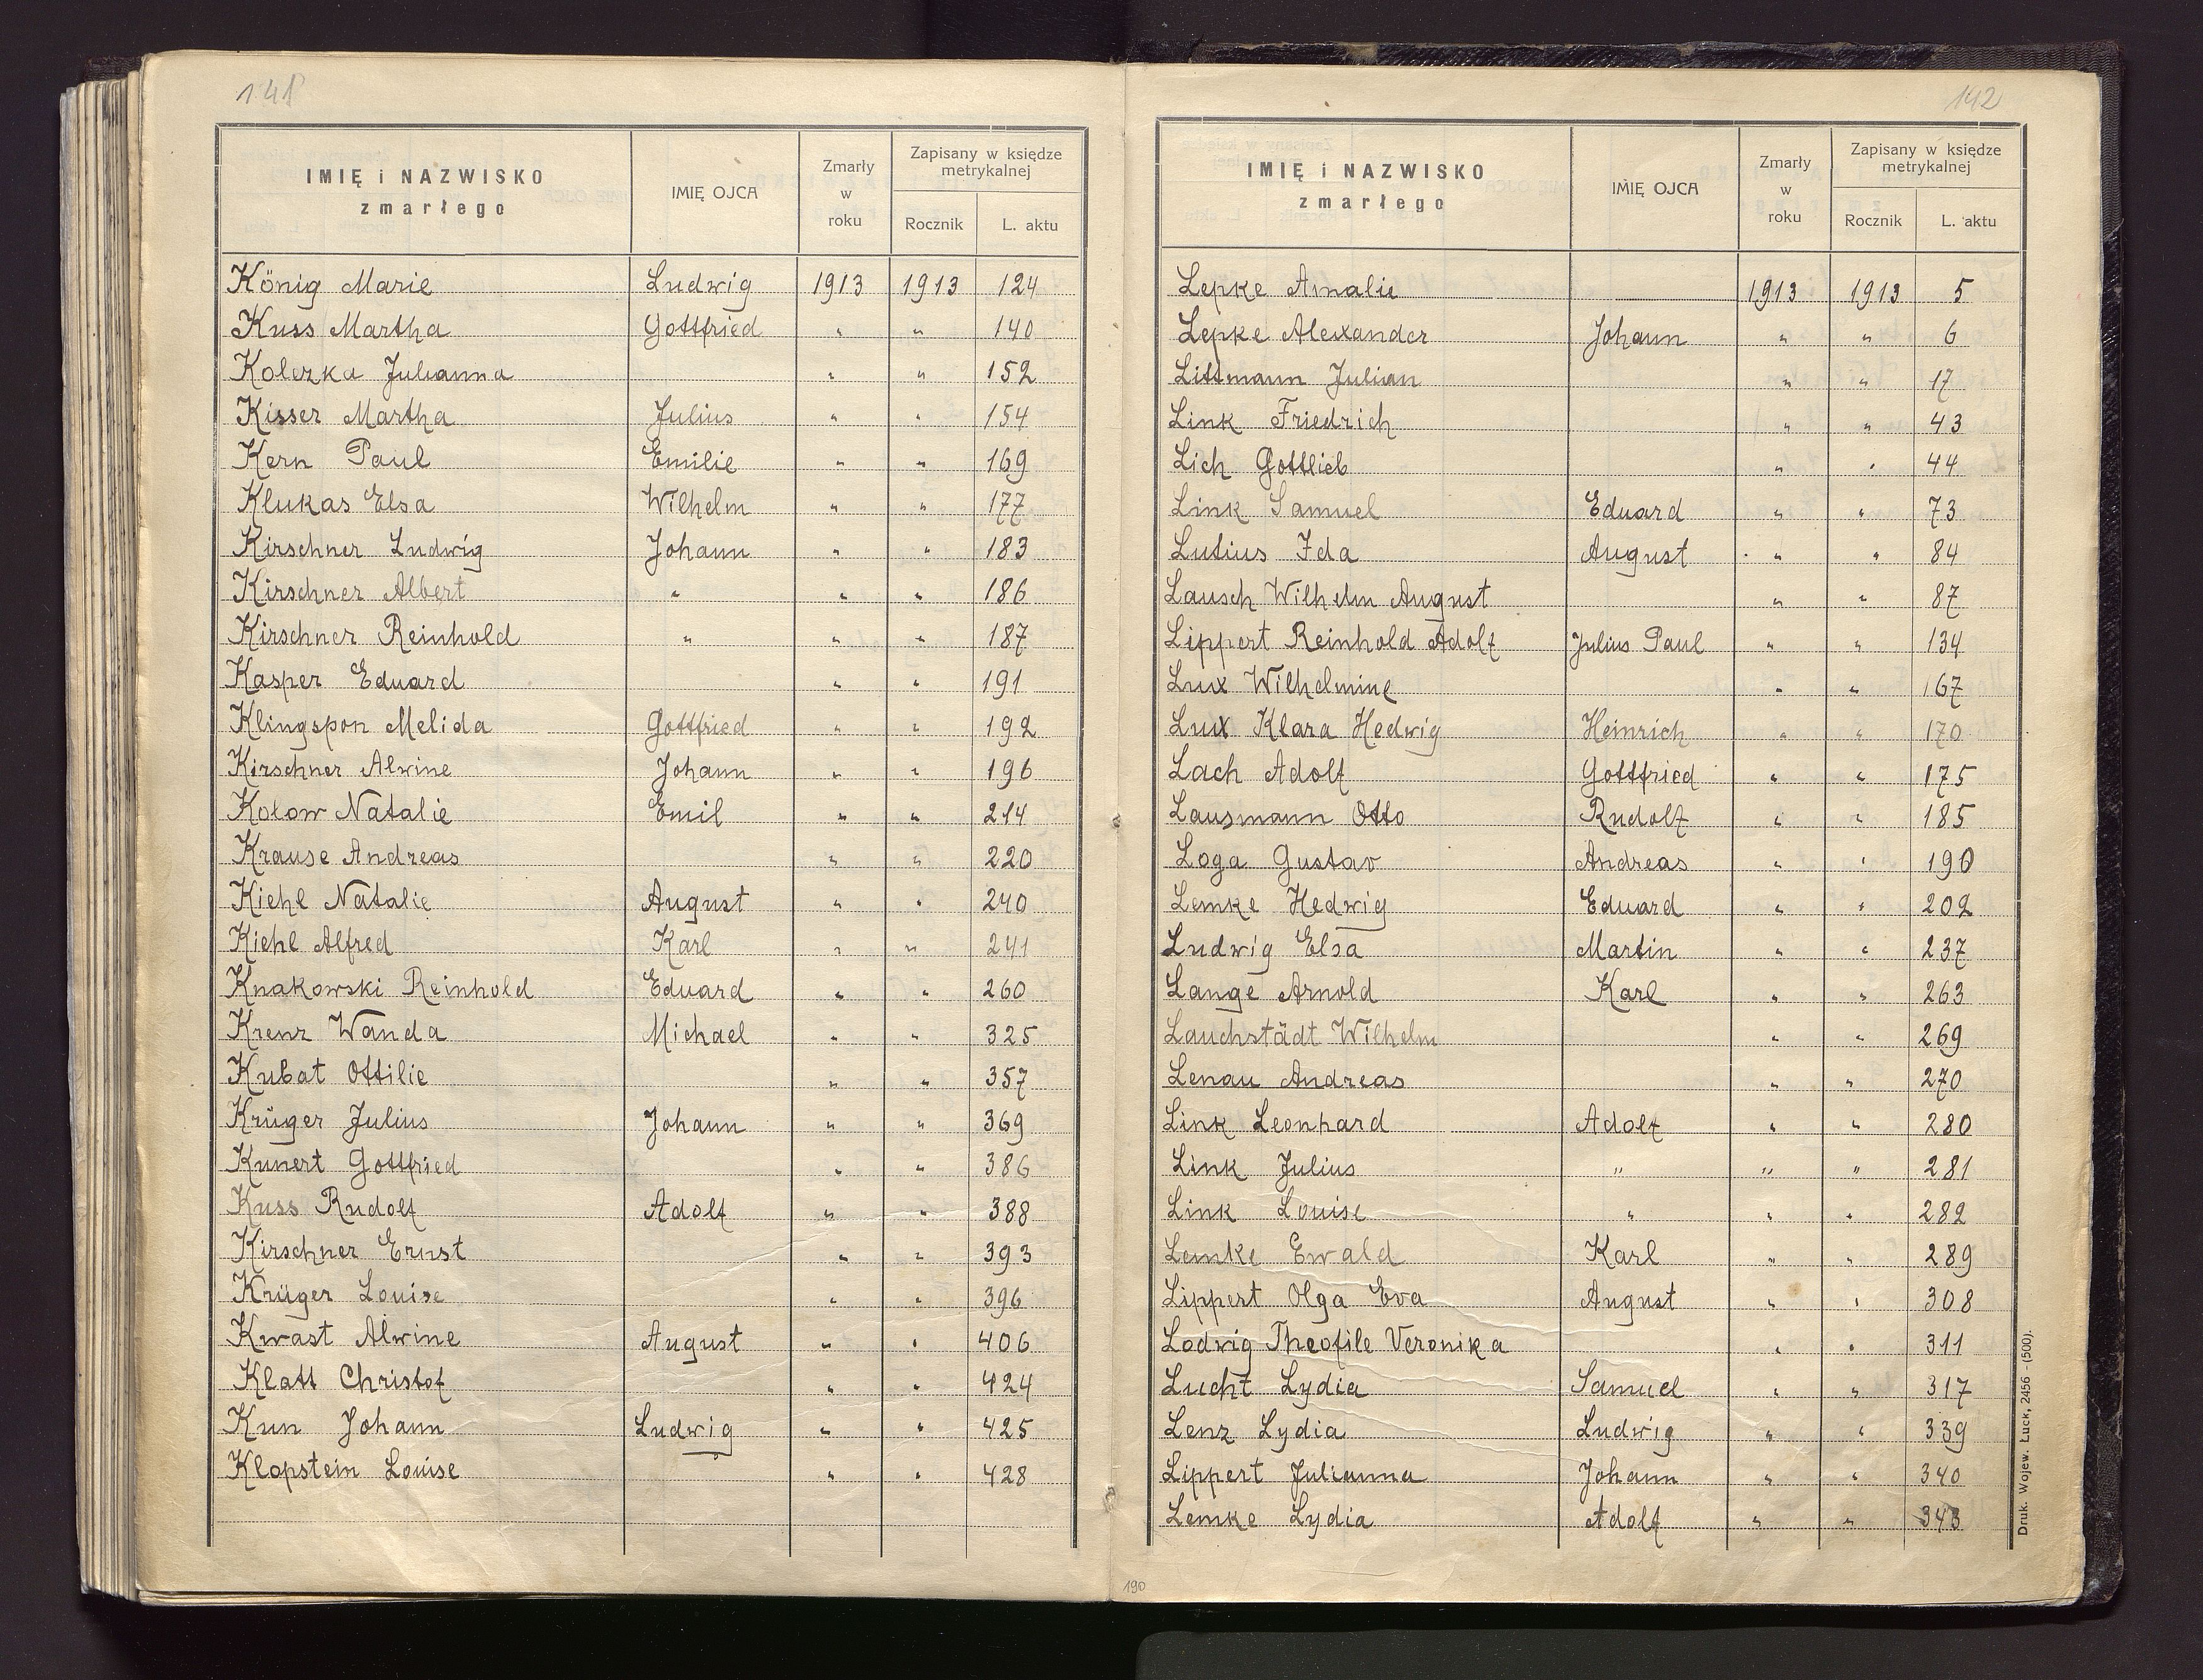 141
IMIĘ i NAZWISKO zmarłego IMIĘ OJCA Zmarły w roku Zapisany w księdze metrykalnej Rocznik L. aktu
König Marie Ludwig 1913 1913 124
Kuss Martha Gottfried " " 140
Kolezka Julianna " " 152
Kisser Martha Julius " " 154
Kern Paul Emilie " " 169
Klukas Elsa Wilhelm " " 177
Kirschner Ludwig Johann " " 183
Kirschner Albert " " " 186
Kirschner Reinhold " " " 187
Kasper Eduard " " 191
Klingspon Melida Gottfried " " 192
Kirschner Alwine Johann " " 196
Kołow Natalie Emil " " 214
Krause Andreas " " 220
Kiehl Natalie August " " 240
Kiehl Alfred Karl " " 241
Knakowski Reinhold Eduard " " 260
Krenz Wanda Michael " " 325
Kubat Ottilie " " 357
Krüger Julius Johann " " 369
Kunert Gottfried " " 386
Kuss Rudolf Adolf " " 388
Kirschner Ernst " " 393
Krüger Louise " " 396
Kwast Alwine August " " 406
Klatt Christof " " 424
Kun Johann Ludwig " " 425
Klopstein Louise " " 428
142
IMIĘ i NAZWISKO zmarłego IMIĘ OJCA Zmarły w roku Zapisany w księdze metrykalnej Rocznik L. aktu
Lepke Amalie 1913 1913 5
Lepke Alexander Johann " " 6
Littmann Julian " " 17
Link Friedrich " " 43
Lich Gottlieb " " 44
Link Samuel Eduard " " 73
Lutius Ida August " " 84
Lausch Wilhelm August " " 87
Lippert Reinhold Adolf Julius Paul " " 134
Lux Wilhelmine " " 167
Lux Klara Hedwig Heinrich " " 170
Lach Adolf Gottfried " " 175
Lausmann Otto Rudolf " " 185
Loga Gustav Andreas " " 190
Lemke Hedwig Eduard " " 202
Ludwig Elsa Martin " " 237
Lange Arnold Karl " " 263
Lauchstädt Wilhelm " " 269
Lenau Andreas " " 270
Link Leonhard Adolf " " 280
Link Julius " " " 281
Link Louise " " " 282
Lemke Ewald Karl " " 289
Lippert Olga Eva August " " 308
Lodwig Theofile Veronika " " 311
Lucht Lydia Samuel " " 317
Lenz Lydia Ludwig " " 339
Lippert Julianna Johann " " 340
Lemke Lydia Adolf " " 343
Druk. Wojew. Łuck, 2456 - (500).
190